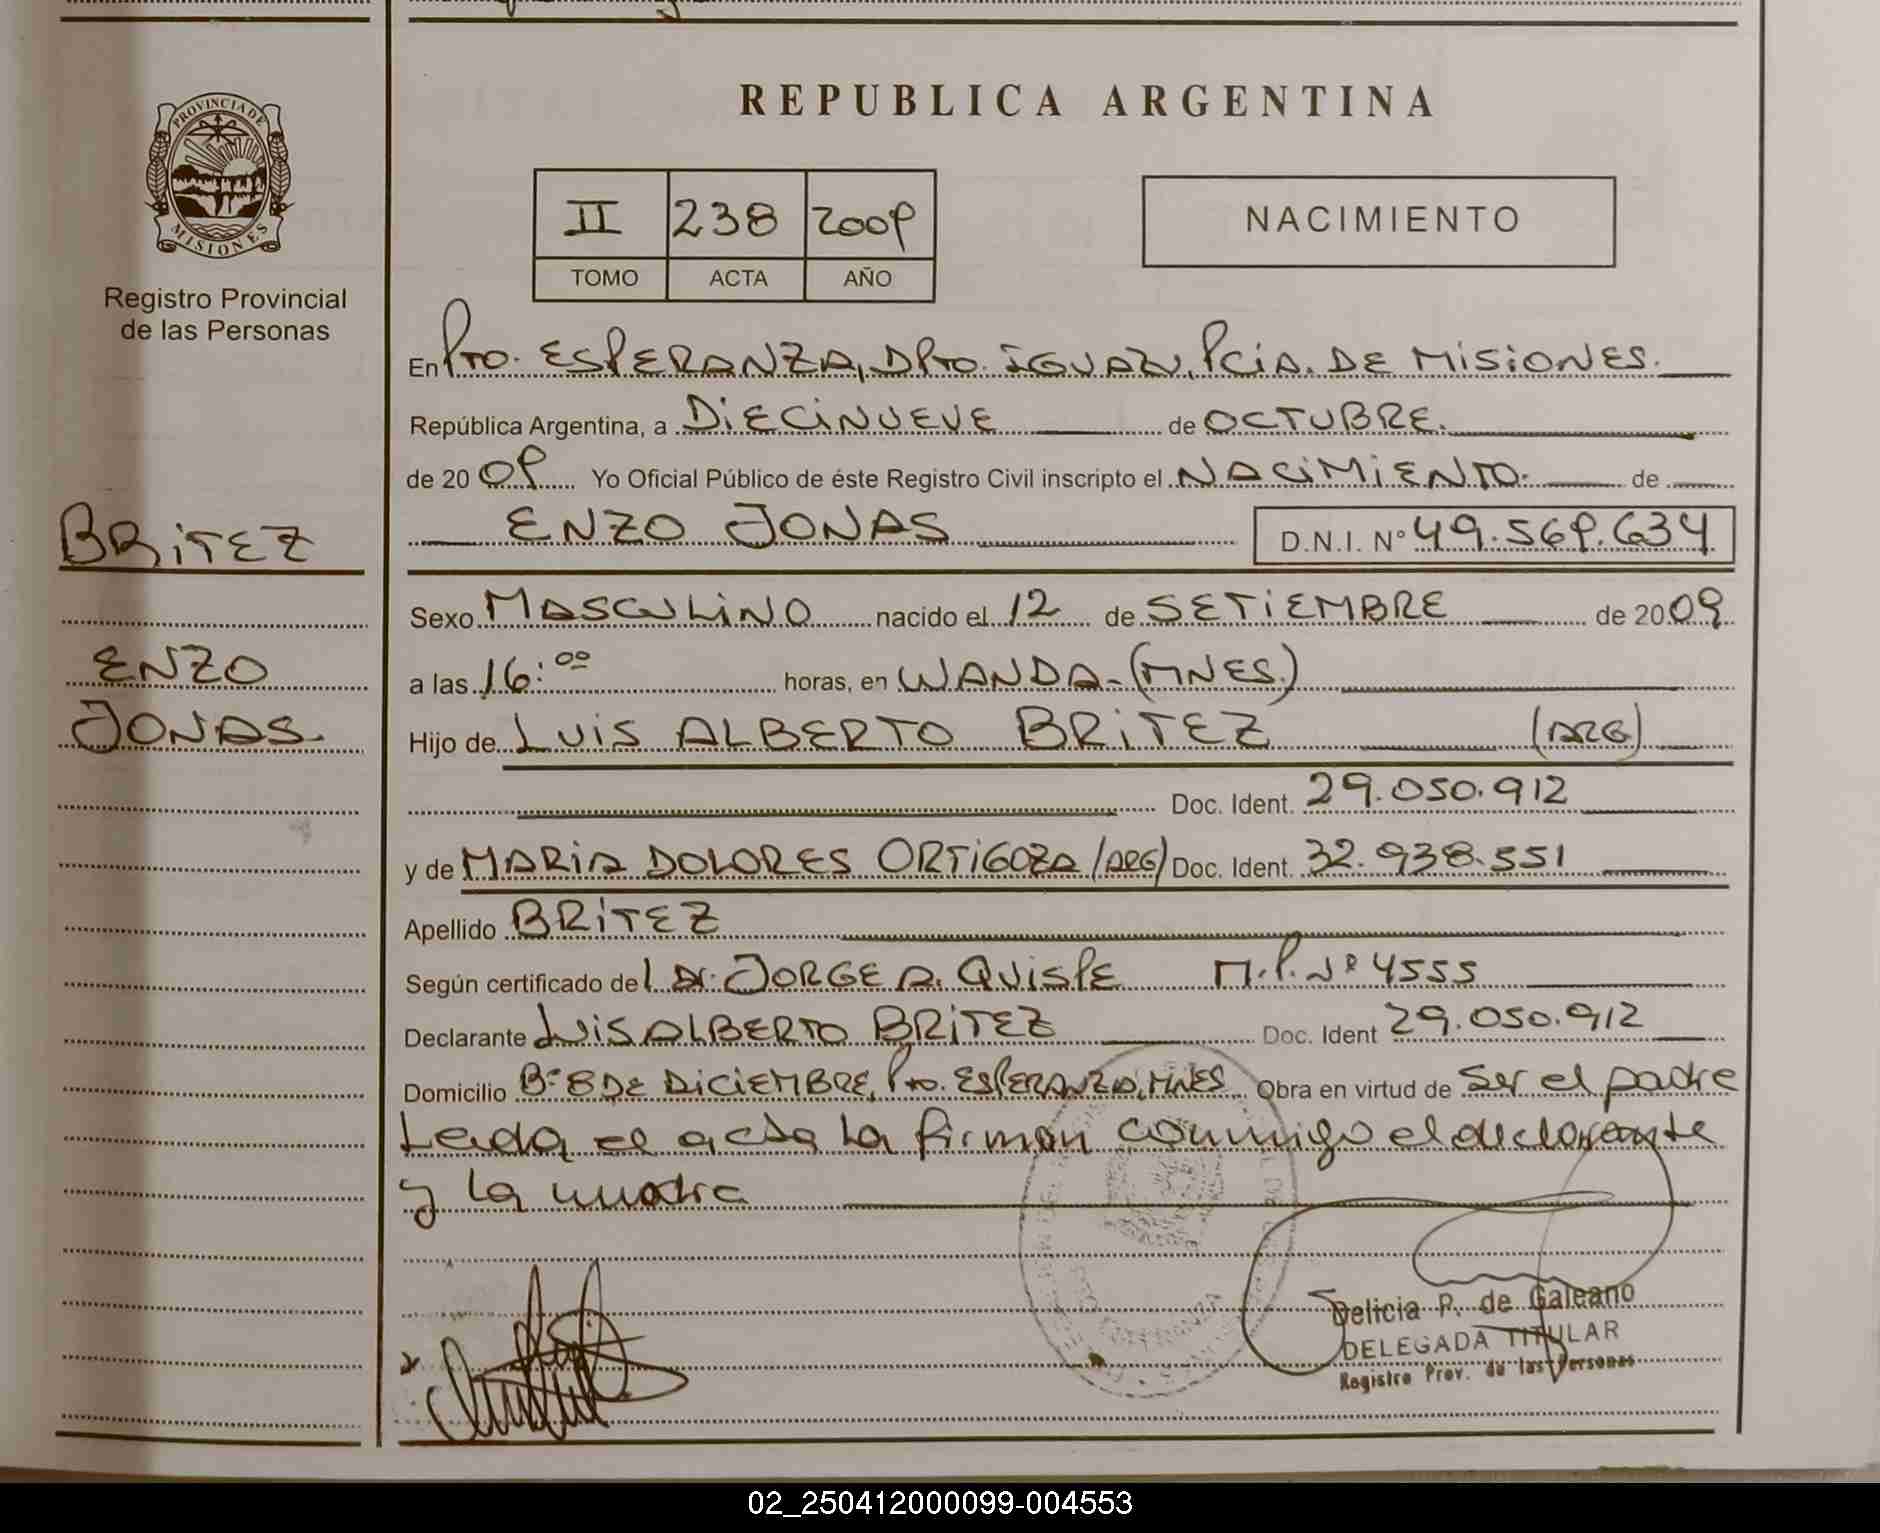 REPUBLICA ARGENTINA
PROVINCIA DE MISIONES
Registro Provincial
de las Personas
II 238 2009
TOMO ACTA AÑO
NACIMIENTO
En Pto. ESPERANZA, DPto. IGUAZU, PCIA. DE MISIONES.
República Argentina, a DIECINUEVE de OCTUBRE.
de 20 09 Yo Oficial Público de éste Registro Civil inscripto el NACIMIENTO. de
BRITEZ
ENZO JONAS D.N.I. N° 49.569.634
Sexo MASCULINO nacido el 12 de SETIEMBRE de 2009
ENZO
a las 16:00 horas, en WANDA-(MNES.)
JONAS.
Hijo de LUIS ALBERTO BRITEZ (ARG)
Doc. Ident. 29.050.912
y de MARIA DOLORES ORTIGOZA (ARG) Doc. Ident. 32.938.551
Apellido BRITEZ
Según certificado de JORGE A. QUISPE M.P. Nº 4555
Declarante LUIS ALBERTO BRITEZ Doc. Ident 29.050.912
Domicilio Bº 8 DE DICIEMBRE, Pto. ESPERANZA, MNES Obra en virtud de ser el padre
Leida el acta la firman conmigo el declarante
y la madre
Delicia P. de Galeano
DELEGADA TITULAR
Registro Prov. de las Personas
02_250412000099-004553